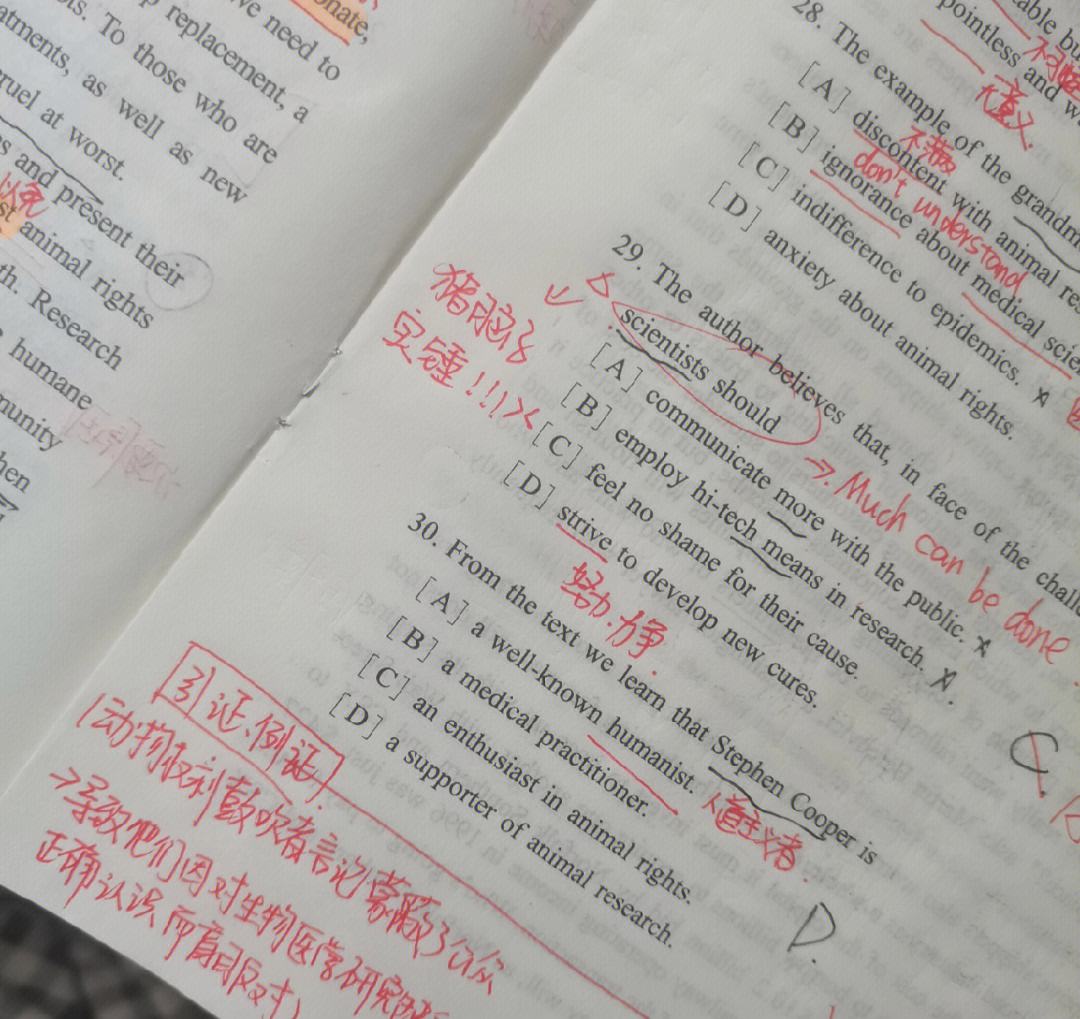 onate,
we need to
replacement, a
ts. To those who are
atments, as well as new
ruel at worst.
s and present their
st animal rights
th. Research
humane
munity
hen
28. The example of the grandm
[A] discontent with animal re
不满
[B] ignorance about medical scie
don't understand
[C] indifference to epidemics.
[D] anxiety about animal rights.
pointless and w
大意义
29. The author believes that, in face of the challe
scientists should
→ Much can be done
[A] communicate more with the public.
[B] employ hi-tech means in research.
[C] feel no shame for their cause.
[D] strive to develop new cures.
努力.争
猪脑子
实锤!!!
C
30. From the text we learn that Stephen Cooper is
[A] a well-known humanist.
人道主义者.
[B] a medical practitioner.
[C] an enthusiast in animal rights.
[D] a supporter of animal research.
D.
引证.例证
(动物权利鼓吹者言论蒙蔽了公众
→导致他们因对生物医学研究缺
正确认识而盲目反对)